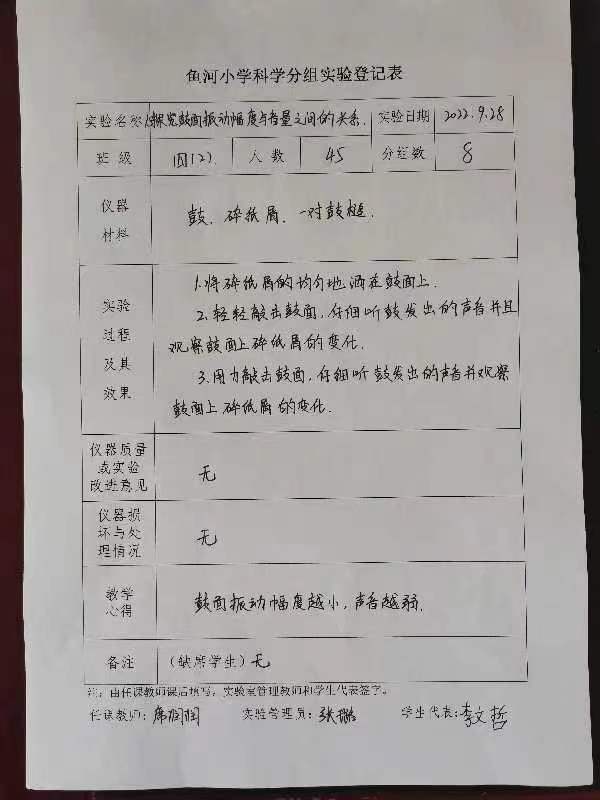 鱼河小学科学分组实验登记表
实验名称 探究鼓面振动幅度与音量之间的关系. 实验日期 2022.9.28
班 级 四(2) 人 数 45 分组数 8
仪器
材料
鼓、碎纸屑、一对鼓槌.
实验
过程
及其
效果
1.将碎纸屑的均匀地洒在鼓面上.
2.轻轻敲击鼓面,仔细听鼓发出的声音并且
观察鼓面上碎纸屑的变化.
3.用力敲击鼓面,仔细听鼓发出的声音并观察
鼓面上碎纸屑的变化.
仪器质量
或实验
改进意见
无
仪器损
坏与处
理情况
无
教学
心得
鼓面振动幅度越小,声音越弱.
备注 (缺席学生) 无
注:由任课教师课后填写,实验室管理教师和学生代表签字。
任课教师: 席润润 实验管理员: 张璐 学生代表: 李文哲